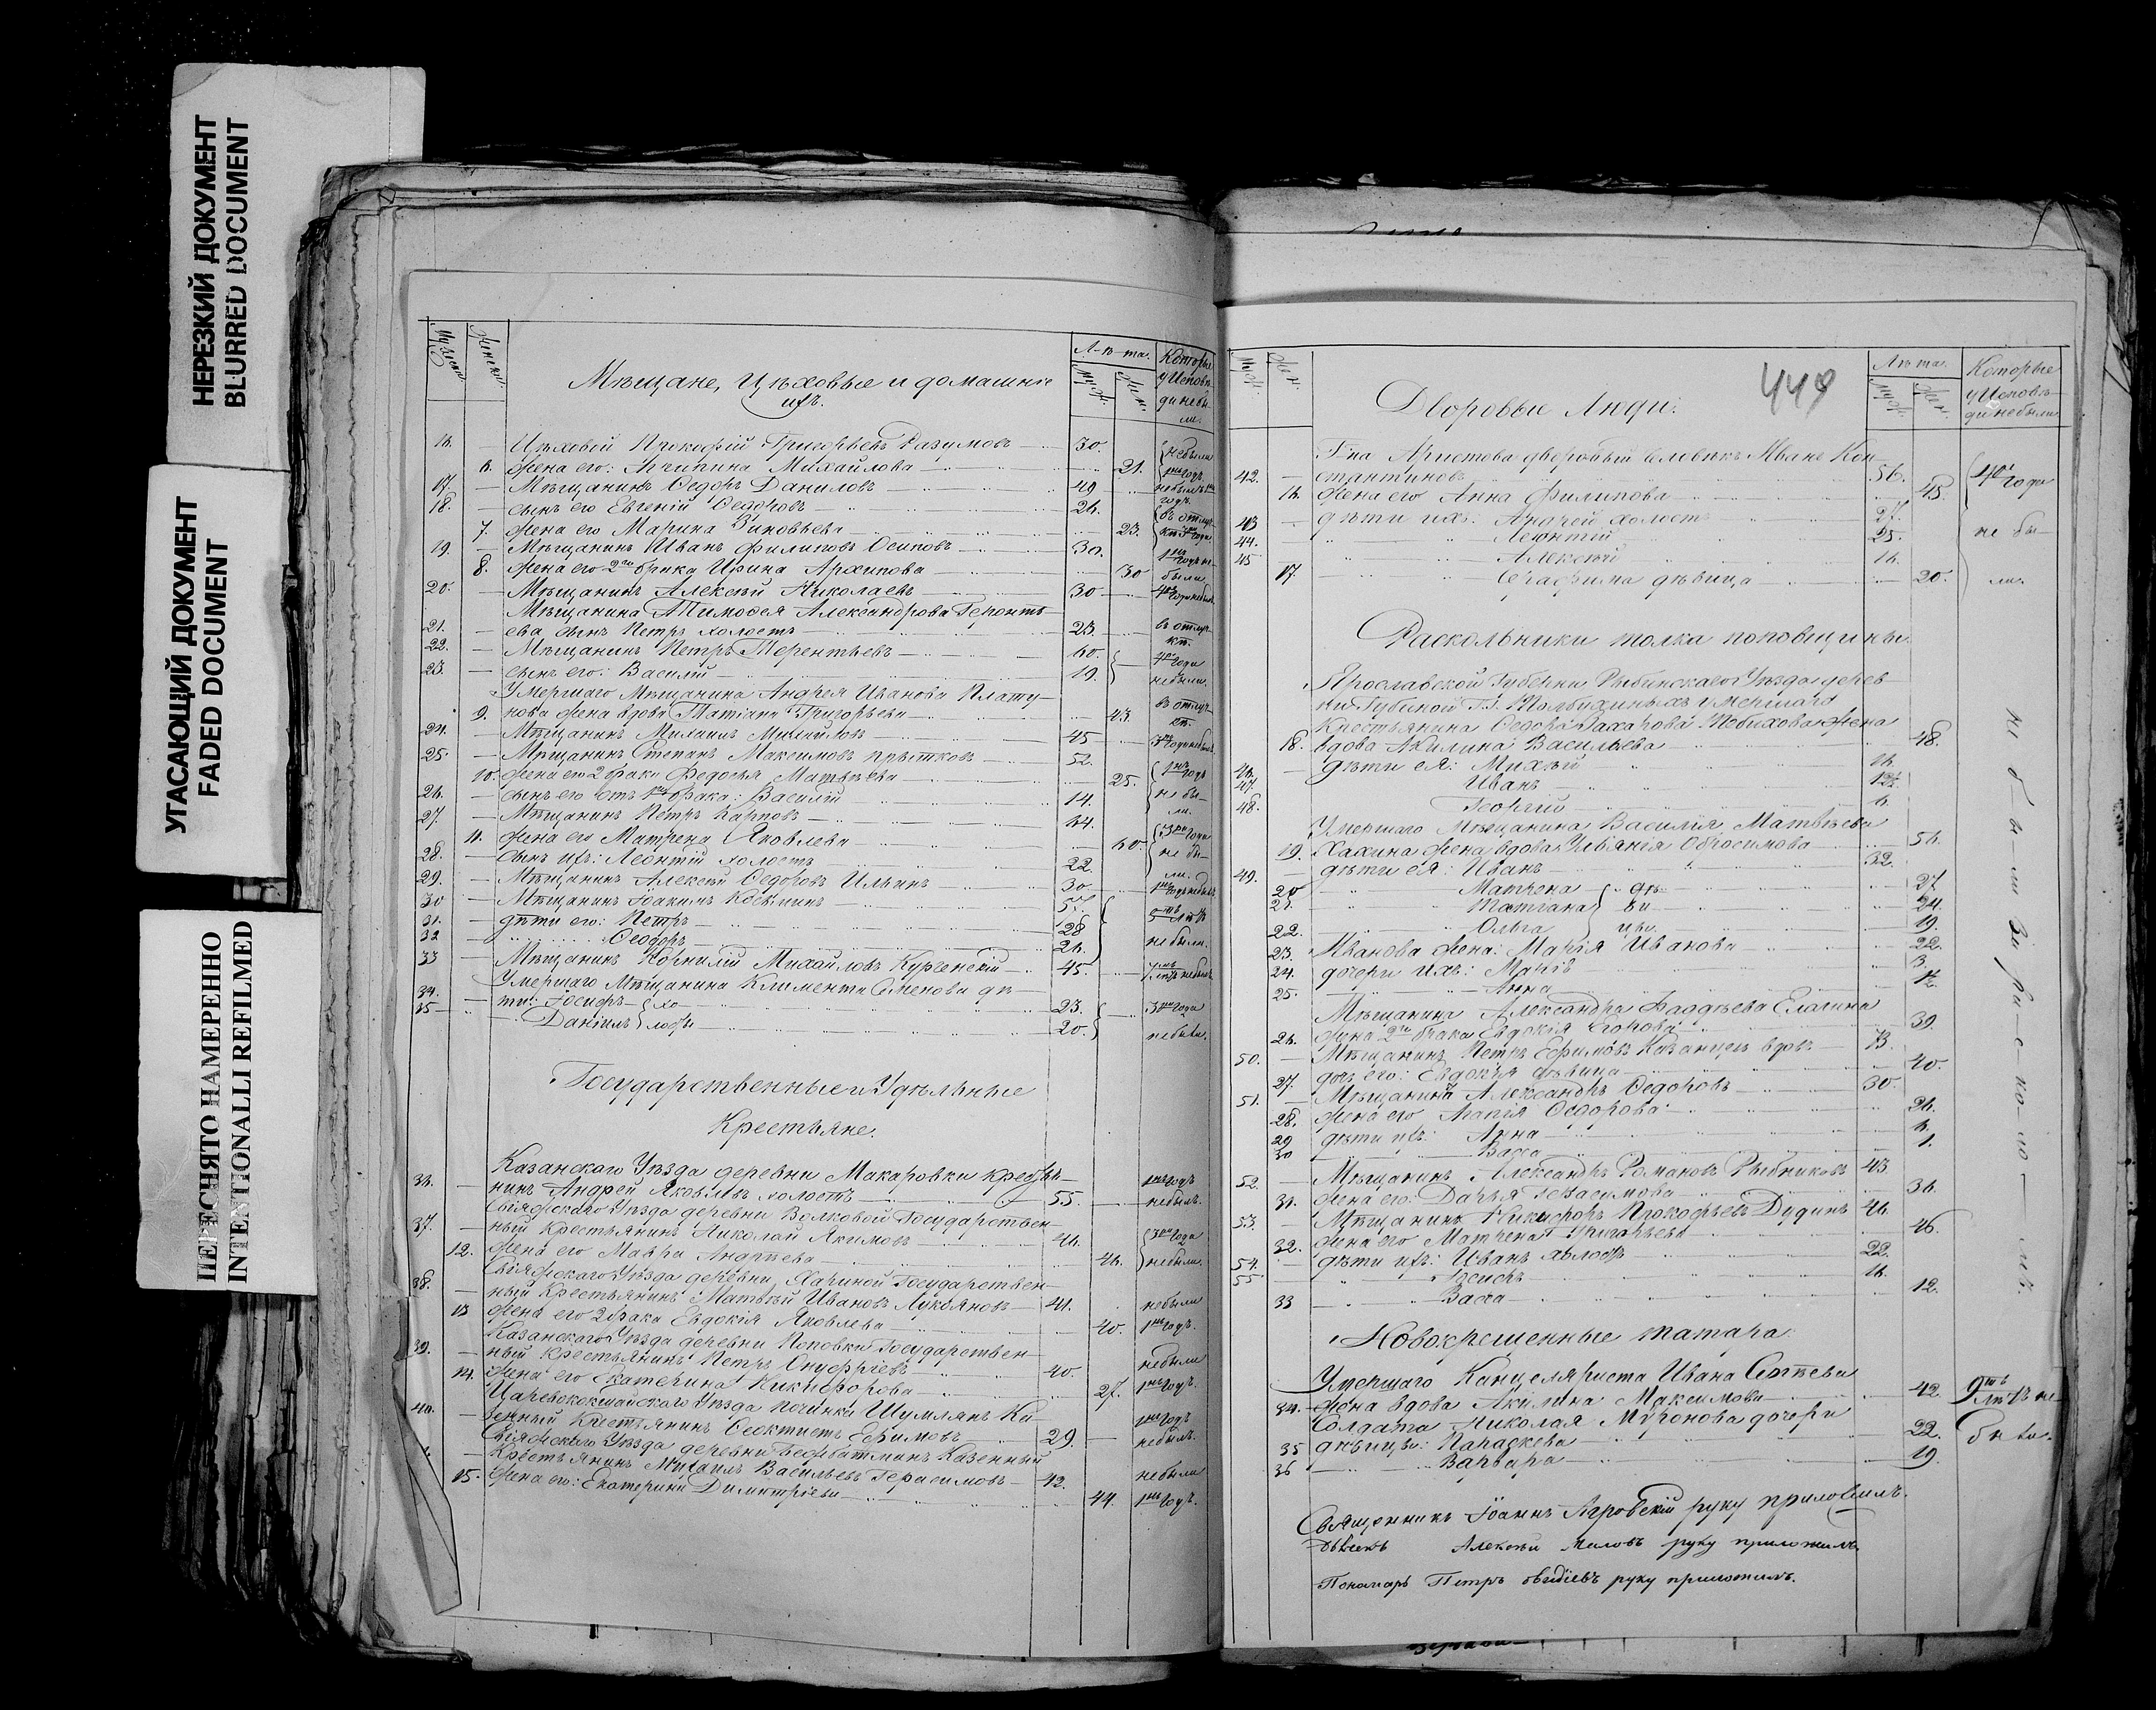 НЕРЕЗКИЙ ДОКУМЕНТ
BLURRED DOCUMENT
УГАСАЮЩИЙ ДОКУМЕНТ
FADED DOCUMENT
ПЕРЕСНЯТО НАМЕРЕННО
INTENTIONALLI REFILMED
Мужеск. Женск. Мѣщане, Цѣховые и домашніе ихъ. Лѣта. Муж. Жен. Которые у Исповѣди небыли.
16. Цѣховой Прокофій Григорьевъ Разумовъ 30. небыли
6. жена его: Агрипина Михайлова 21. 1нъ годъ.
17. Мѣщанинъ Ѳедоръ Даниловъ 49
18. сынъ его Евгеній Ѳедоровъ 26. въ отлуч-
7. жена его Марина Зиновьева 23.
19. Мѣщанинъ Иванъ Филиповъ Осиповъ 30.
8. жена его 2го брака Ирина Архипова 30 были
20. Мѣщанинъ Алексѣй Николаевъ 30
Мѣщанина Тимоѳея Александрова Геронть-
21. ева сынъ Петръ холостъ 23. въ отлуч-
22. Мѣщанинъ Петръ Терентьевъ 60. кѣ.
23. сынъ его: Василій 19. небыли.
Умершаго Мѣщанина Андрея Иванова Плату-
9. нова жена вдова Татіана Григорьева 43. въ отлуч-
24. Мѣщанинъ Михаилъ Михайловъ 45
25. Мѣщанинъ Степанъ Максимовъ Прытковъ 52.
10. жена его 2 брака Федосья Матвѣева 25. 1нъ годъ
26. сынъ его отъ 1го брака: Василій 14. не бы-
27. Мѣщанинъ Петръ Карповъ 64. ли.
11. жена его Матрена Яковлева 60. 3 года
28. сынъ ихъ: Леонтій холостъ 22. не бы-
29. Мѣщанинъ Алексѣй Ѳедоровъ Ильинъ 30. ли.
30 Мѣщанинъ Іоакимъ 57.
31. дѣти его: Петръ 28
32 Ѳеодоръ 26. не были.
33 Мѣщанинъ Корнилій Михайловъ 45.
Умершаго Мѣщанина Климента Семенова дѣ-
34. ти: Іосифъ хо- 23. 3 года
35 Даніилъ лосты 20. небыли.
Государственные и Удѣльные
Крестьяне.
Казанскаго Уѣзда деревни Макаровки кресть-
36. нинъ Андрей Яковлевъ холостъ 55. небылъ.
Свіяжскаго Уѣзда деревни Волковой Государствен-
37. ный Крестьянинъ Николай Акимовъ 46. 3 года
12. жена его Мавра Андреева 46. небыли.
Свіяжскаго Уѣзда деревни Государствен-
38. ный Крестьянинъ Матвѣй Ивановъ Лукояновъ 41. небыли
13 жена его 2 брака Евдокія Яковлева 40. 1нъ годъ.
Казанскаго Уѣзда деревни Поповки Государствен-
39. ный крестьянинъ Петръ Онуфріевъ 40. небыли
14. жена его Екатерина Никифорова 27. 1нъ годъ.
Царевококшайскаго Уѣзда починка Шумлянъ Ка-
40. зенный Крестьянинъ Ѳеоктистъ Ефимовъ 29. небылъ.
Свіяжскаго Уѣзда деревни Казенный
Крестьянинъ Михаилъ Васильевъ Герасимовъ 42. небыли
15. жена его: Екатерина Димитріева 44. 1нъ годъ.
449
Муж. Жен. Дворовые Люди. Лѣта. Муж. Жен. Которые у Исповѣди небыли
Г-на Аристова дворовый человѣкъ Иванъ Кон-
42. стантиновъ 56. 4 года
16. жена его Анна Филипова 45.
43 дѣти ихъ: Андрей холостъ 27. не бы-
44. Леонтій 25.
45 Алексѣй 16.
17. Серафима дѣвица 20. ли.
Раскольники толка поповщины.
Ярославской Губерніи Рыбинскаго Уѣзда дерев-
Крестьянина Ѳедора Захарова жена
18. вдова Акилина Васильева 48.
46. дѣти ея: Михѣй 16.
47. Иванъ 12.
48. Георгій 6.
Умершаго Мѣщанина Василія Матвѣева
19. жена вдова Ульянія Обросимова 56.
49. дѣти ея: Иванъ 32.
20 Матрена дѣ- 27
21. Татіана ви- 24.
22. Ольга цы. 19.
23. Иванова жена: Марія Иванова 22.
24. дочери ихъ: Марія 3.
25. Анна ½
Мѣщанина Александра Фаддѣева Елагина
26. жена 2го брака Евдокія Егорова 39.
50. Мѣщанинъ Петръ Ефимовъ Казанцевъ вдовъ 73.
27. дочь его: Евдокія дѣвица 40.
51. Мѣщанинъ Александръ Ѳедоровъ 30.
28. жена его Ѳедорова 26.
29 дѣти ихъ: Анна 6.
30 Васса 1.
52. Мѣщанинъ Александръ Романовъ Рыбниковъ 43
31. жена его: Дарья Герасимова 36.
53. Мѣщанинъ Никифоръ Прокофьевъ Дудинъ 46.
32. жена его Матрена Григорьева 46.
54. дѣти ихъ: Иванъ холостъ 22.
55 Іосифъ 16.
33 Васса 12.
не бы-ли За рас-ко-ло-мъ.
Новокрещенные татара.
Умершаго Канцеляриста Ивана Сергѣева
34. жена вдова Акилина Максимова 42. 9 лѣтъ не
Солдата Николая Миронова дочери
35 дѣвицы: Параскева 22. были.
36 Варвара 19.
Священникъ Іоаннъ руку приложилъ.
Дьячекъ Алексѣй Миловъ руку приложилъ.
Пономарь Петръ руку приложилъ.